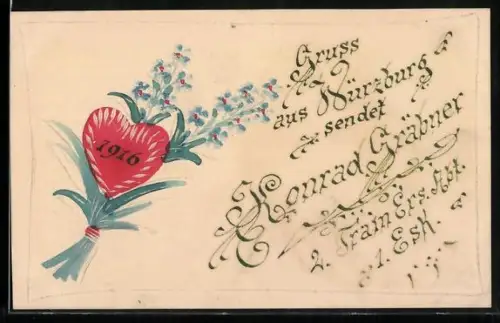 1916
Gruss
aus Würzburg
sendet
Konrad Gräbner
2. Train Ers. Abt.
1. Esk.